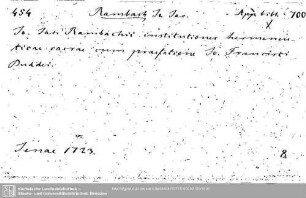 454 Rambach Jo Jac. 700
Jo. Jaci Rambachii institutiones hermeneu-
ticae sacrae cum praefatione Jo. Francisci
Buddei.
Jenae 1723. 8
Sächsische Landesbibliothek -
Staats- und Universitätsbibliothek Dresden